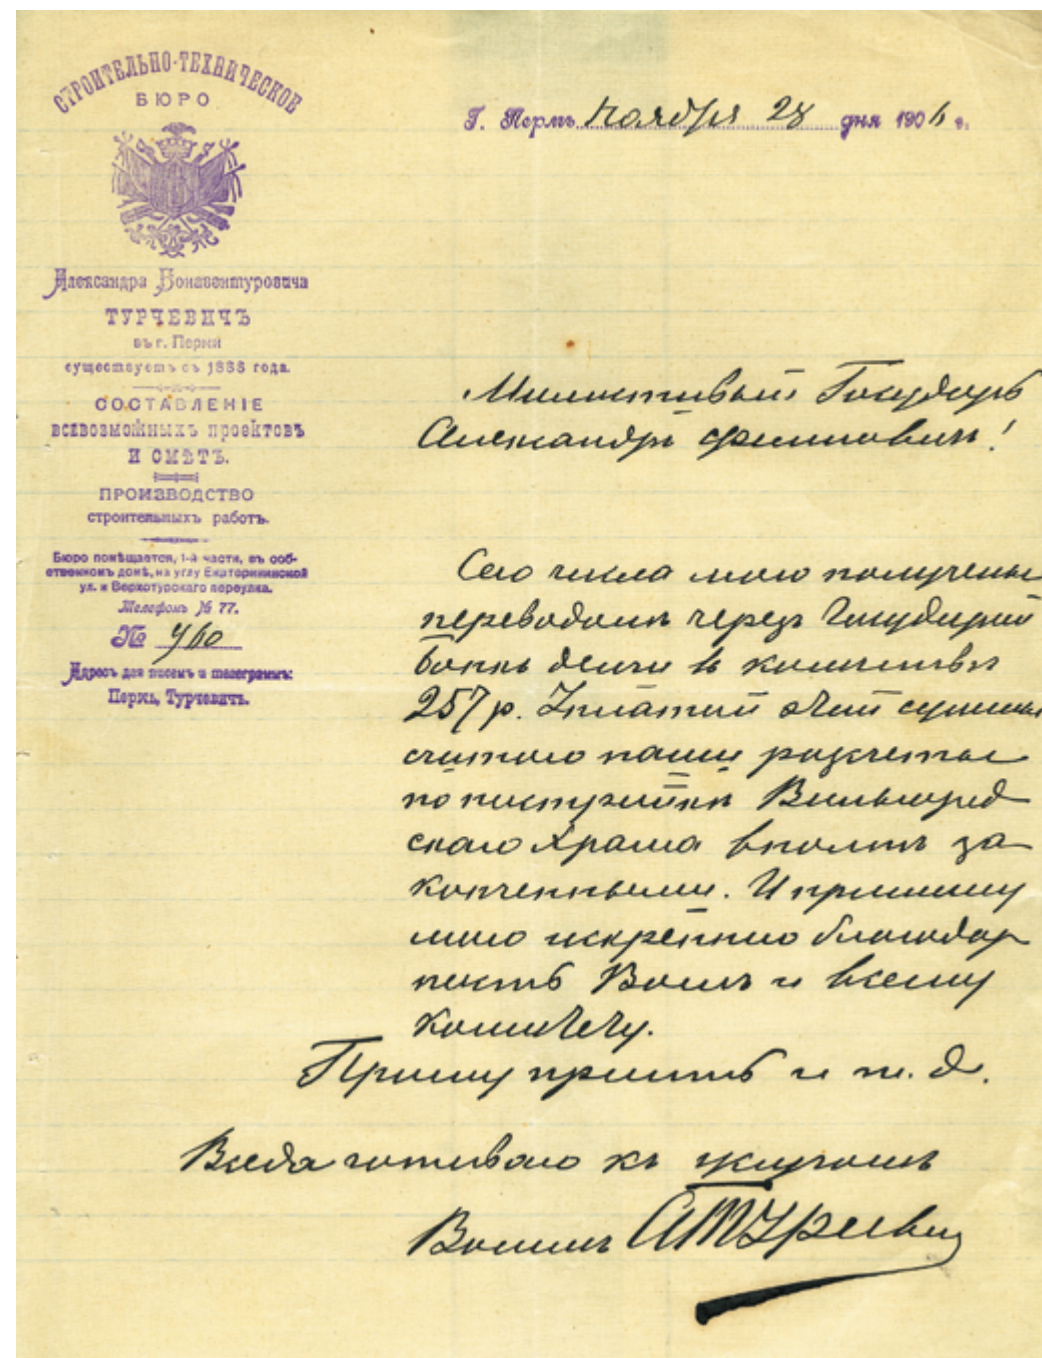 СТРОИТЕЛЬНО-ТЕХНИЧЕСКОЕ
БЮРО
Александра Бонавентуровича
ТУРЧЕВИЧЪ
въ г. Перми
существуетъ съ 1888 года.
СОСТАВЛЕНІЕ
всевозможныхъ проектовъ
И СМѢТЪ.
ПРОИЗВОДСТВО
строительныхъ работъ.
Бюро помѣщается, 1-й части, въ соб-
ственномъ домѣ, на углу Екатерининской
ул. и Верхотурскаго переулка.
Телефонъ № 77.
№ 460
Адресъ для писемъ и телеграммъ:
Пермь, Турчевичъ.
Г. Пермь Ноября 28 дня 1906 г.
Милостивый Государь
Александръ!
Сего числа мною получены
переводомъ черезъ Государ
банкъ деньги в количествѣ
257 р. Уплатой этой суммы
считаю наши разсчеты
по постройкѣ Вильгорд
скаго Храма вполнѣ за
конченными. И приношу
мою искреннюю благодар
ность Вамъ и всему
комитету.
Прошу принять и т. д.
Всегда готоваго къ услугамъ
Вашимъ АТурчевич